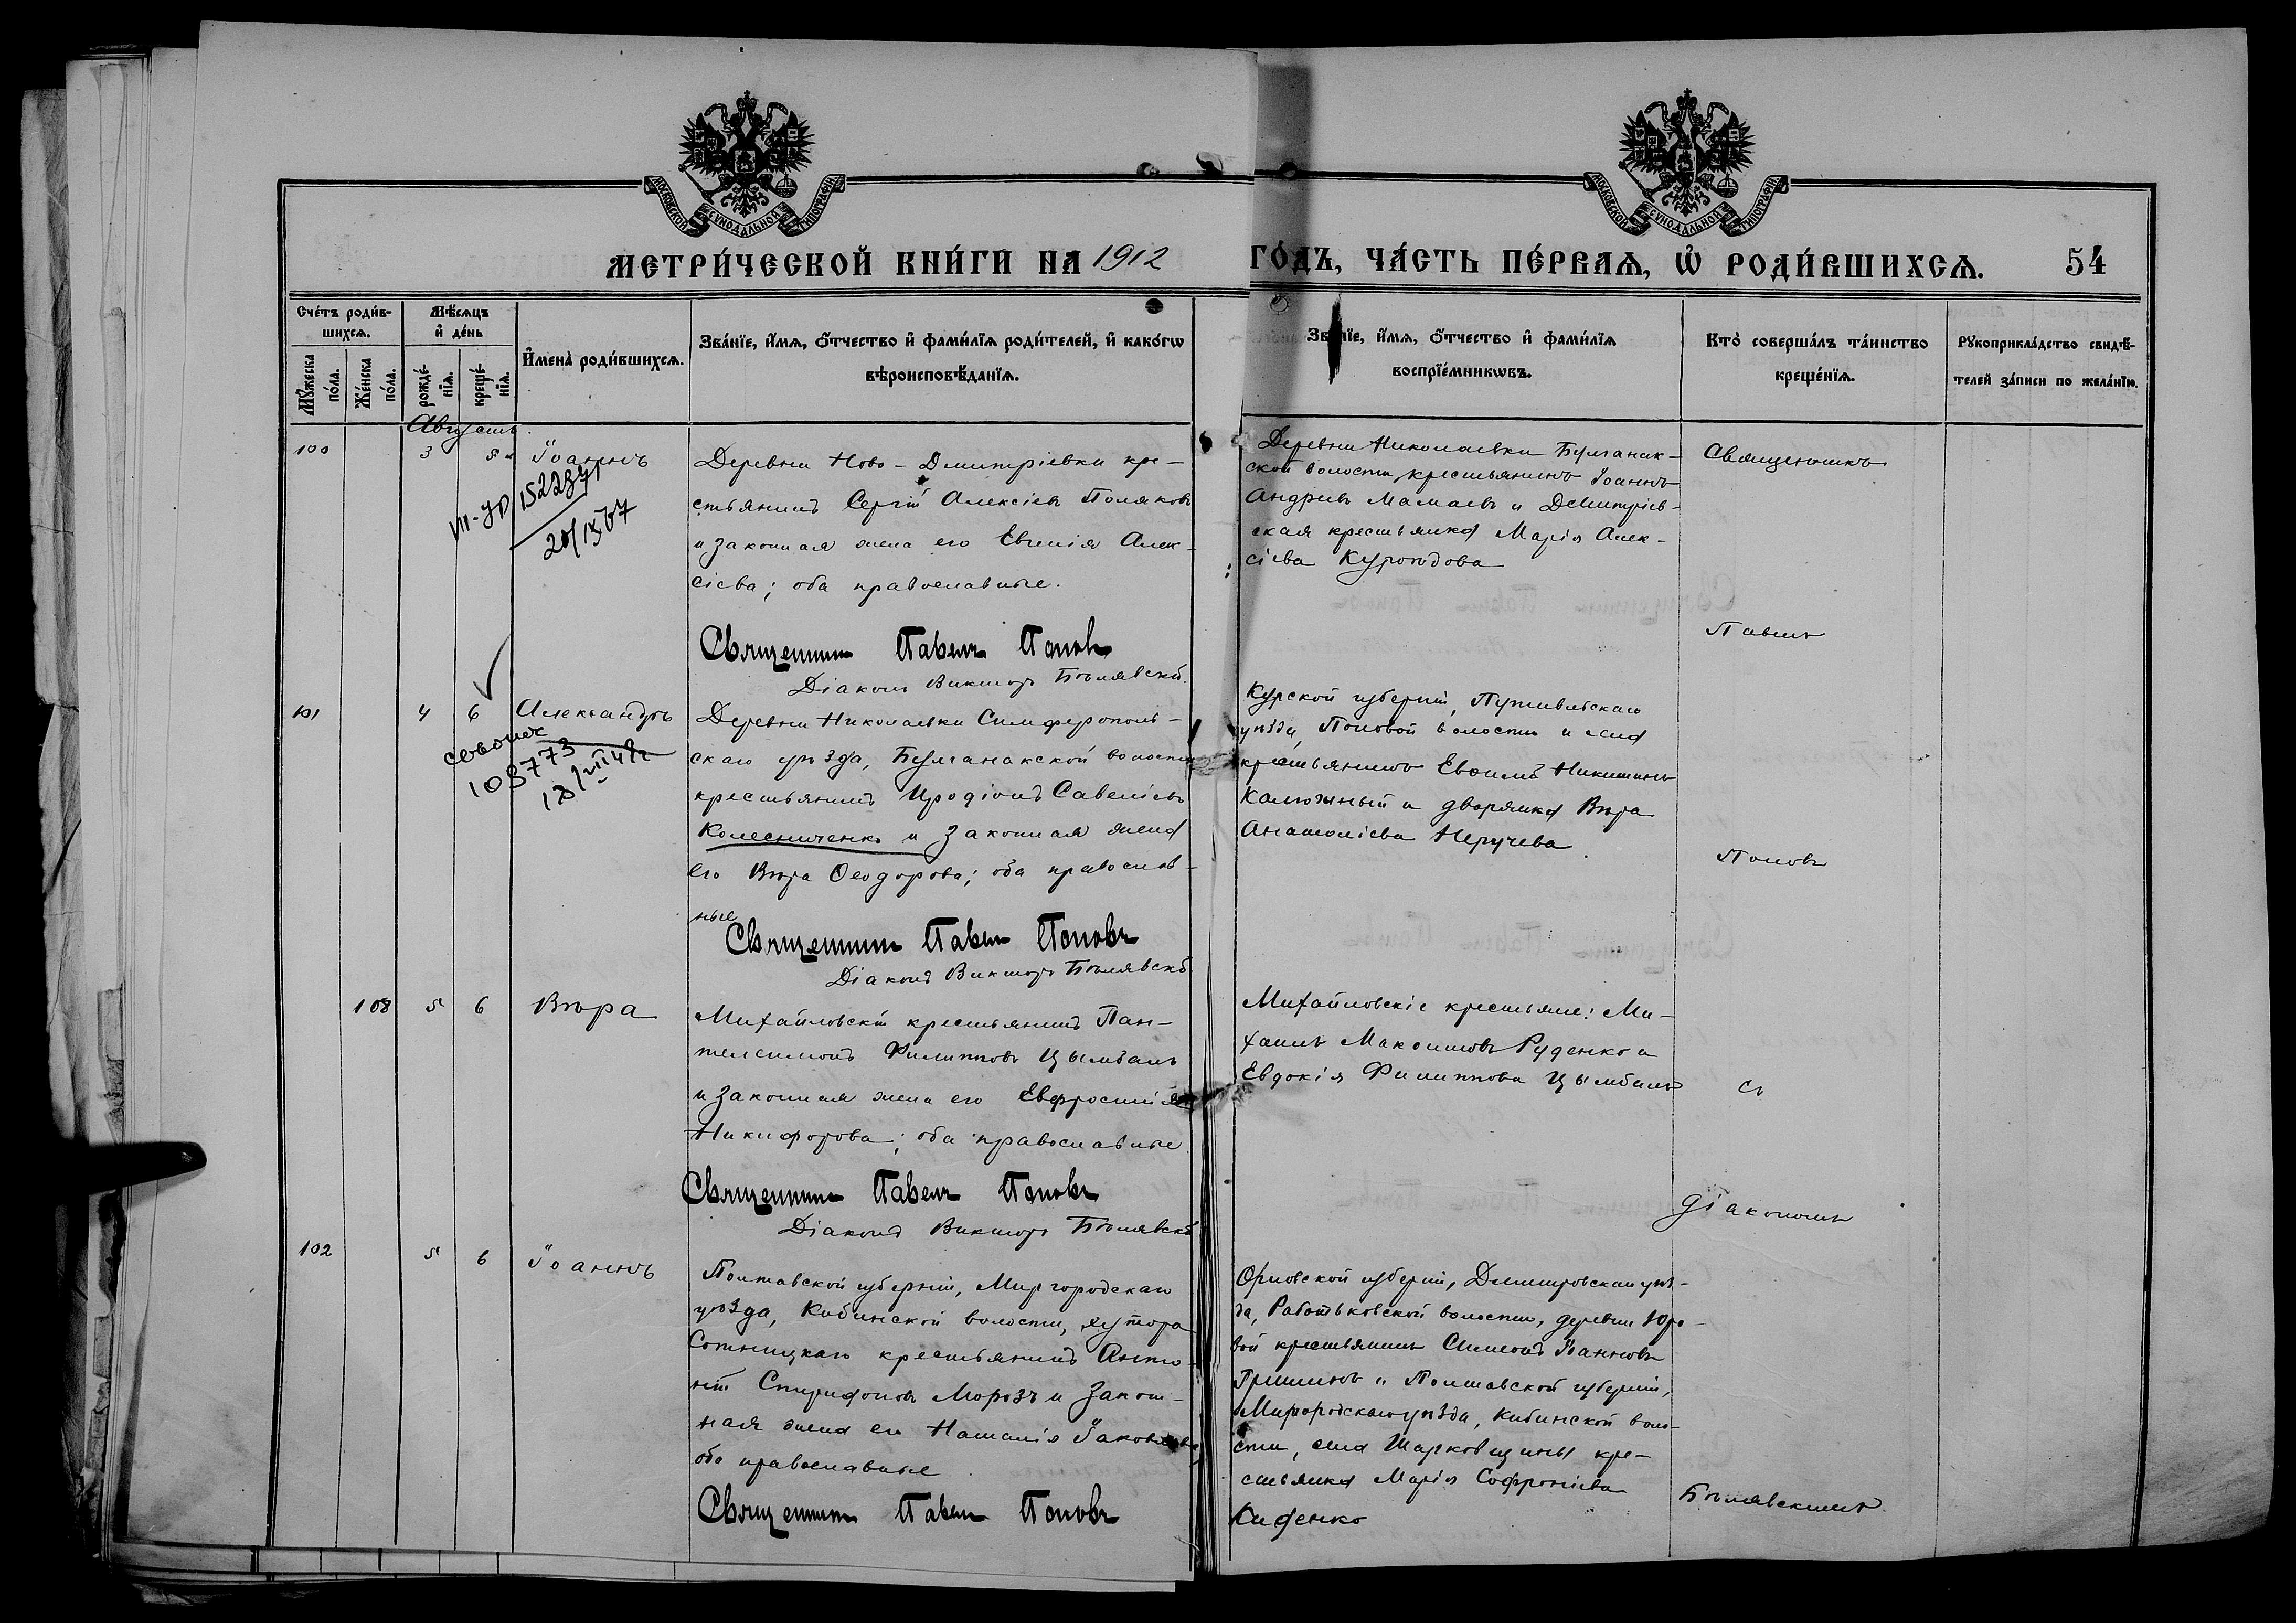 МОСКОВСКОЙ СѴНОДАЛЬНОЙ ТИПОГРАФІИ
МОСКОВСКОЙ СѴНОДАЛЬНОЙ ТИПОГРАФІИ
МЕТРИ́ЧЕСКОЙ КНИ́ГИ НА 1912 ГО́ДЪ, ЧА́СТЬ ПЕ́РВАѦ, Ѡ҆ РОДИ́ВШИХСѦ. 54
Сче́тъ роди́в-
шихсѧ.
Мꙋ́жеска
по́ла.
Же́нска
по́ла.
Мѣ́сѧцъ
и҆ де́нь
рожде́-
нїѧ.
креще́-
нїѧ.
И҆мена̀ роди́вшихсѧ.
Зва́нїе, и҆́мѧ, ѻ҆́тчество и҆ фами́лїѧ роди́телей, и҆ како́гѡ
вѣроисповѣ́данїѧ.
Зва́нїе, и҆́мѧ, ѻ҆́тчество и҆ фами́лїѧ
воспрїе́мникѡвъ.
Кто̀ соверша́лъ та́инство
креще́нїѧ.
Рꙋкоприкла́дство свидѣ́-
телей за́писи по жела́нїю.
Августъ
100 3 5 Іоаннъ
152287
20/IX 67
Деревни Ново-Дмитріевки кре-
стьянинъ Сергій Алексіевъ Поляковъ
и законная жена его Евгенія Алек-
сіева; оба православные.
Священникъ Павелъ Поповъ
Діаконъ Викторъ Бѣлявскій.
Деревни Николаевки Булганак-
ской волости крестьянинъ Іоаннъ
Андреевъ Мамаевъ и Дмитріев-
ская крестьянка Марія Алек-
сіева
Священникъ
Павелъ
101 4 6 Александръ
108773
18/VII 49г
Деревни Николаевки Симферополь-
скаго уѣзда, Булганакской волости
крестьянинъ Иродіонъ Савеліевъ
Колесниченко и законная жена
его Вѣра Ѳеодорова; оба православ-
ные
Священникъ Павелъ Поповъ
Діаконъ Викторъ Бѣлявскій
Курской губерніи, Путивльскаго
уѣзда, Поповой волости и села
крестьянинъ Евѳимій Никитинъ
Калюжный и дворянка Вѣра
Анатоліева Неручева
Поповъ
108 5 6 Вѣра
Михайловскій крестьянинъ Пан-
телеимонъ Филипповъ Цымбалъ
и законная жена его Евфросинія
Никифорова; оба православные
Священникъ Павелъ Поповъ
Діаконъ Викторъ Бѣлявскій
Михайловскіе крестьяне: Ми-
хаилъ Максимовъ Руденко и
Евдокія Филиппова Цымбалъ
съ
діакономъ
102 5 6 Іоаннъ
Полтавской губерніи, Миргородскаго
уѣзда, Кибинской волости, хутора
Сотницкаго крестьянинъ Анто-
ній Спиридоновъ Морозъ и закон-
ная жена его Наталія Іаковлева
оба православные
Священникъ Павелъ Поповъ
Орловской губерніи, Дмитровскаго уѣз-
да, Работьковской волости, деревни Юро-
вой крестьянинъ Симеонъ Іоанновъ
Гришинъ и Полтавской губерніи,
Миргородскаго уѣзда, Кибинской воло-
сти, села Шарковщины кре-
стьянка Марія Софроніева
Диденко
Бѣлявскимъ